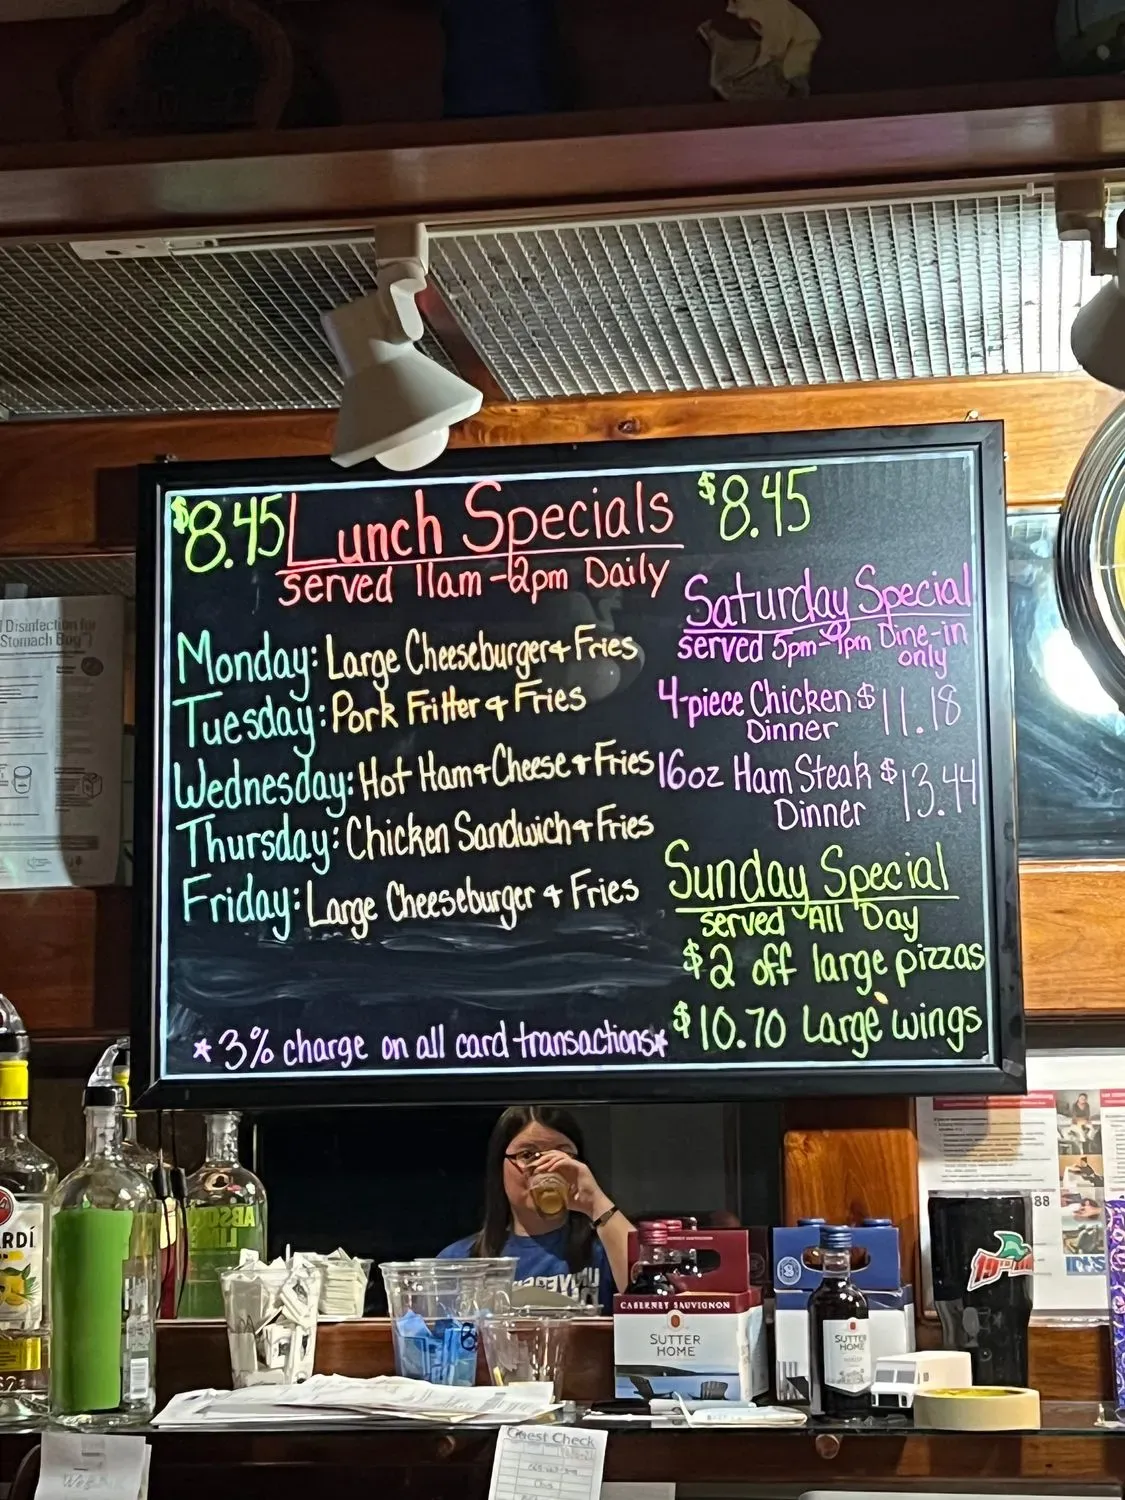 $8.45 Lunch Specials $8.45
served 11am-2pm Daily
Monday: Large Cheeseburger & Fries
Tuesday: Pork Fritter & Fries
Wednesday: Hot Ham & Cheese & Fries
Thursday: Chicken Sandwich & Fries
Friday: Large Cheeseburger & Fries
*3% charge on all card transactions*
Saturday Special
served 5pm-9pm Dine-in
only
4-piece Chicken $11.18
Dinner
16oz Ham Steak $13.44
Dinner
Sunday Special
served All Day
$2 off large pizzas
$10.70 Large wings
Disinfection for
Stomach Bug")
ABSOLUT
LIME
CABERNET SAUVIGNON
SUTTER
HOME
SUTTER
HOME
19th
88
Guest Check